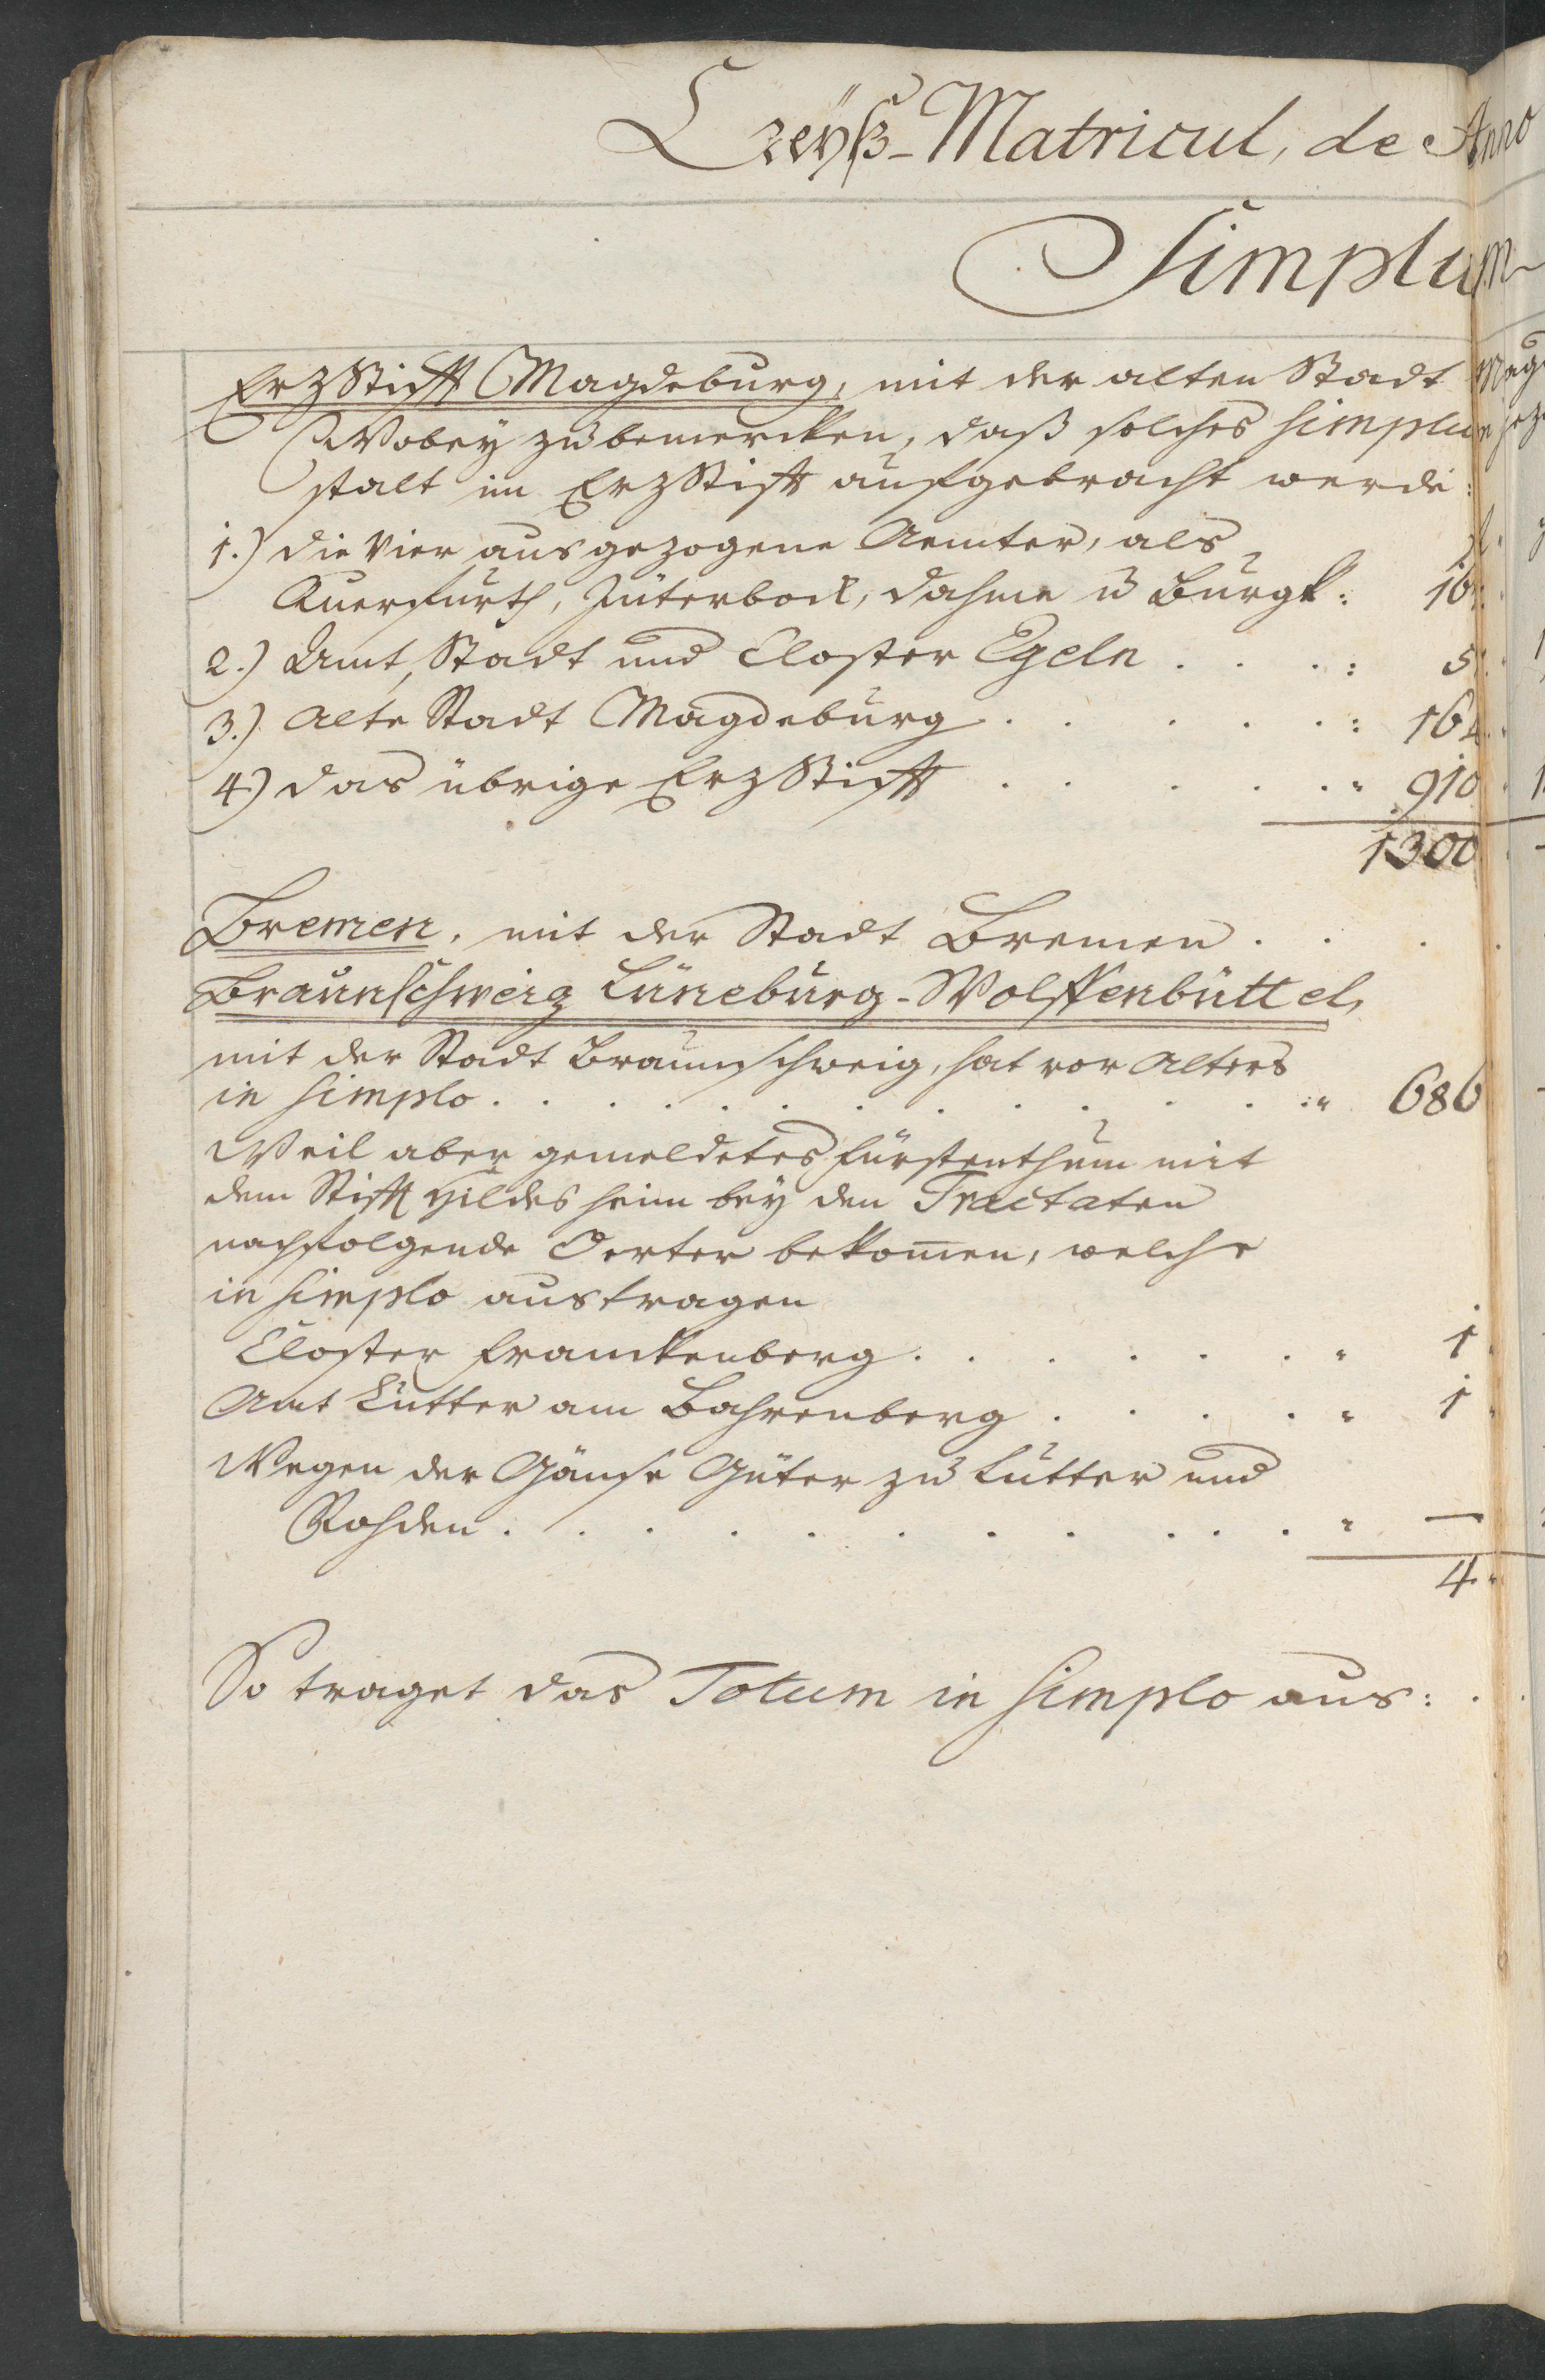 Creyß-Matricul, de Anno
Simplum
ErzStifft Magdeburg, mit der alten Stadt Mag
Wobey zu bemercken, daß solches simplum
stalt im ErzStifft aufgebracht werde:
1.) Die Vier ausgezogene Aemter, als
Querfurth, Jüterbock, Dahme u Burgk: 16
2.) Amt, Stadt und Closter Egeln . . . . : 5
3.) Alte Stadt Magdeburg . . . . . : 164
4.) Das übrige ErzStifft . . . . . " 910
1300
Bremen, mit der Stadt Bremen . . . .
Braunschweig Lüneburg-Wolffenbüttel,
mit der Stadt Braunschweig, hat vor Alters
in simplo . . . . . . . . . . . " 686
Weil aber gemeldetes Fürstenthum mit
dem Stifft Hildesheim bey den Tractaten
nachfolgende Oerter bekom̄en, welche
in simplo austragen
Closter Franckenberg . . . . . . " 1
Amt Lutter am Bahrenberg . . . . " 1
Wegen der Gänse Güter zu Lutter und
Rohden . . . . . . . . . . . " —
4.
So traget das Totum in simplo aus: . .